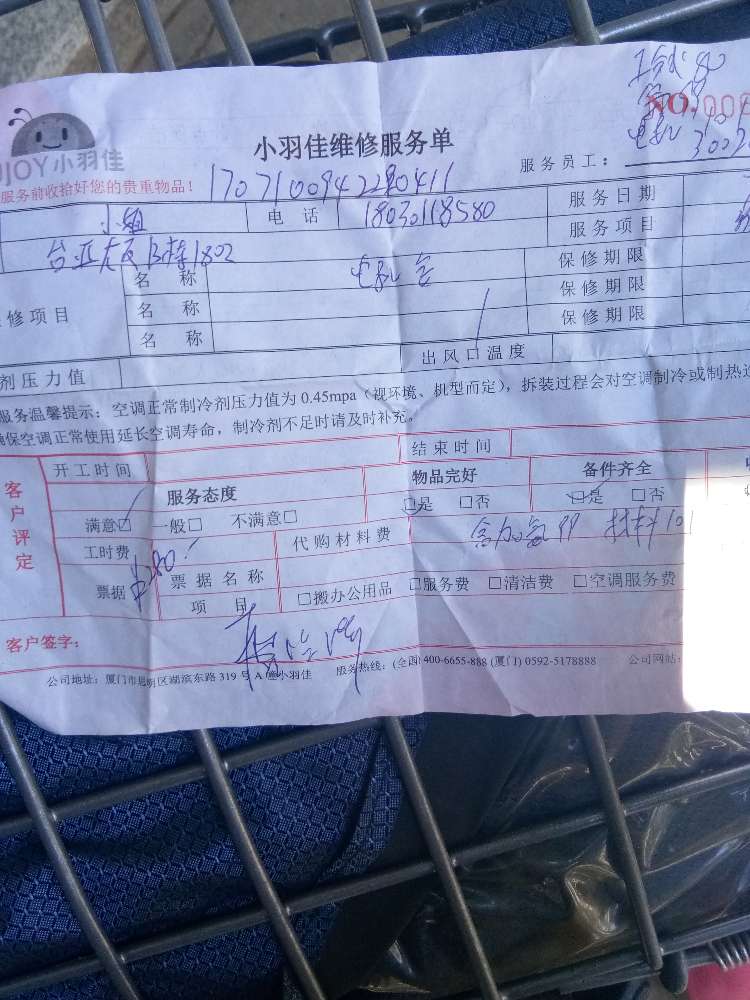 NO.000
小羽佳维修服务单
JOY小羽佳
服务员工：
服务前收拾好您的贵重物品！
1707100942280411
小姐 电话 18030118580 服务日期
1802 服务项目
名称 保修期限
修项目 名称 保修期限
名称 保修期限
剂压力值 出风口温度
服务温馨提示：空调正常制冷剂压力值为 0.45mpa（视环境、机型而定），拆装过程会对空调制冷或制热
保空调正常使用延长空调寿命，制冷剂不足时请及时补充。
客户评定 开工时间 结束时间
服务态度 物品完好 备件齐全
满意☑ 一般□ 不满意□ ☑是 □否 ☑是 □否
工时费 代购材料费 材料101
票据 280 票据名称
项目 □搬办公用品 □服务费 □清洁费 □空调服务费
客户签字：
公司地址：厦门市思明区湖滨东路 319 号 A 座小羽佳 服务热线：(全国) 400-6655-888 (厦门) 0592-5178888 公司网站：